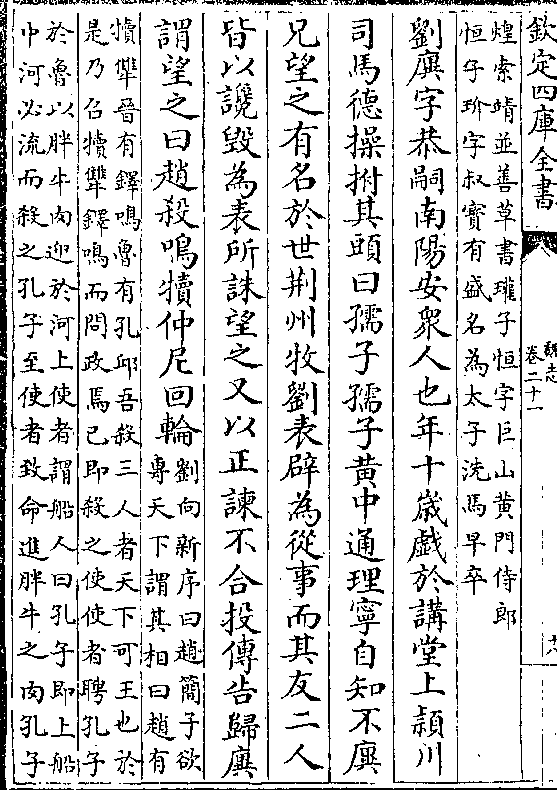 欽定四庫全書
魏志
卷二十一
煌索靖並善草書瓘子恒字巨山黄門侍郎
恒子玠字叔寶有盛名為太子洗馬早卒
劉廙字恭嗣南陽安衆人也年十歲戲於講堂上潁川
司馬德操拊其頭曰孺子孺子黄中通理寧自知不廙
兄望之有名於世荆州牧劉表辟為從事而其友二人
皆以讒毁為表所誅望之又以正諫不合投傳告歸廙
謂望之曰趙殺鳴犢仲尼回輪劉向新序曰趙簡子欲
專天下謂其相曰趙有
犢犨晉有鐸鳴魯有孔邱吾殺三人者天下可王也於
是乃召犢犨鐸鳴而問政焉已即殺之使使者聘孔子
於魯以胖牛肉迎於河上使者謂船人曰孔子即上船
中河必流而殺之孔子至使者致命進胖牛之肉孔子